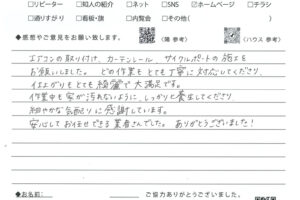 □リピーター □知人の紹介 □ネット □SNS ☑ホームページ □チラシ
□通りすがり □看板・旗 □内覧会 □その他( )
◆感想やご意見をお願い致します。 (陽 参考) (ハウス 参考)
エアコンの取り付け、カーテンレール、サイクルポートの施工を
お願いしました。どの作業もとても丁寧に対応してくださり、
仕上がりもとても綺麗で大満足です。
作業中も家が汚れないように、しっかりと養生してくださり
細やかな気配りに感謝しています。
安心してお任せできる業者さんでした。ありがとうございました!
◆お名前:
ご協力ありがとうございました。